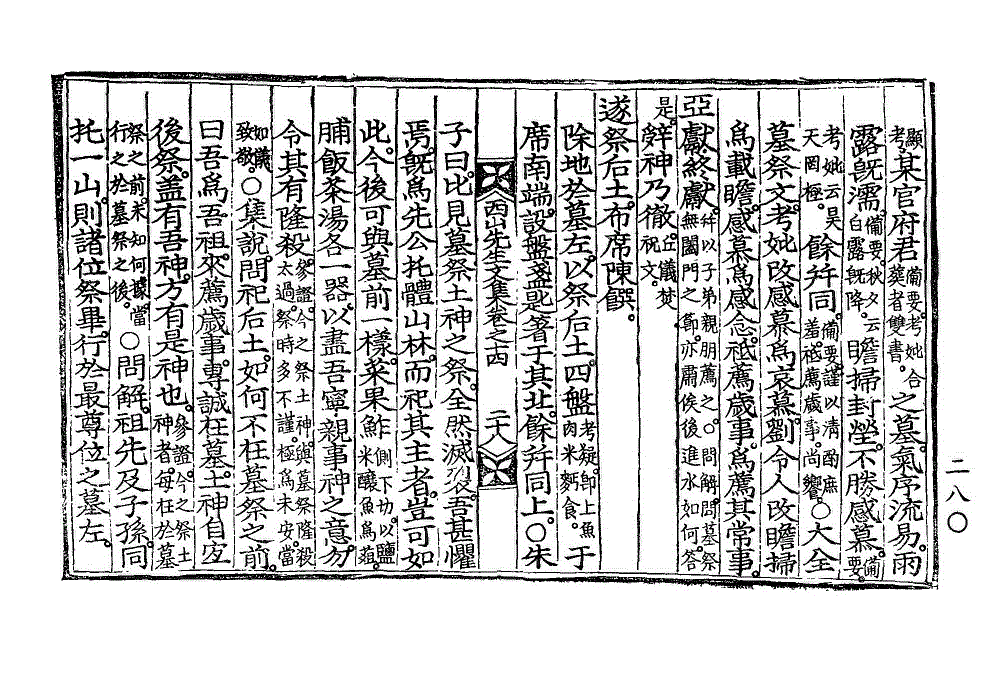 顯考某官府君備要考妣合葬者雙書之墓。氣序流易。雨
露旣濡。備要。秋夕云白露旣降。瞻掃封塋。不勝感慕。備要。
考妣云昊天罔極。餘幷同。備要謹以淸酌庶羞。祗薦歲事。尙饗。○大全
墓祭文。考妣改感慕爲哀慕。劉令人改瞻掃
爲載瞻。感慕爲感念。祗薦歲事。爲薦其常事。
亞獻終獻。幷以子弟親朋薦之。○問解。問墓祭獻無闔門之節。亦肅俟後進水如何。答
是。辭神乃徹。丘儀。焚祝文。
遂祭后土。布席陳饌。
除地於墓左。以祭后土。四盤考疑。卽上魚肉米麪食。于
席南端。設盤盞匙箸于其北。餘幷同上。○朱
西山先生文集卷之四 二十八
子曰。比見墓祭土神之祭。全然滅裂。吾甚懼
焉。旣爲先公托體山林。而祀其主者。豈可如
此。今後可與墓前一樣。菜果鮓側下切。以鹽米釀魚爲葅。
脯飯茶湯各一器。以盡吾寧親事神之意。勿
令其有隆殺。參證。今之祭土神。與墓祭隆殺太過。祭時多不謹。極爲未安。當
如儀致敬。○集說。問祀后土。如何不在墓祭之前。
曰吾爲吾祖。來薦歲事。專誠在墓。土神自宜
後祭。盖有吾神。方有是神也。參證。今之祭土神者。每在於墓
祭之前。未知何據。當行之於墓祭之後。○問解。祖先及子孫。同
托一山。則諸位祭畢。行於最尊位之墓左。
二八〇